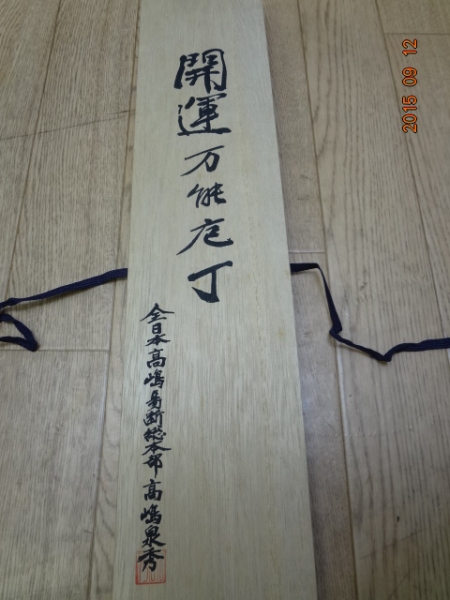 開運万能庖丁
全日本高嶋易断総本部高嶋泉秀
2015 09 12